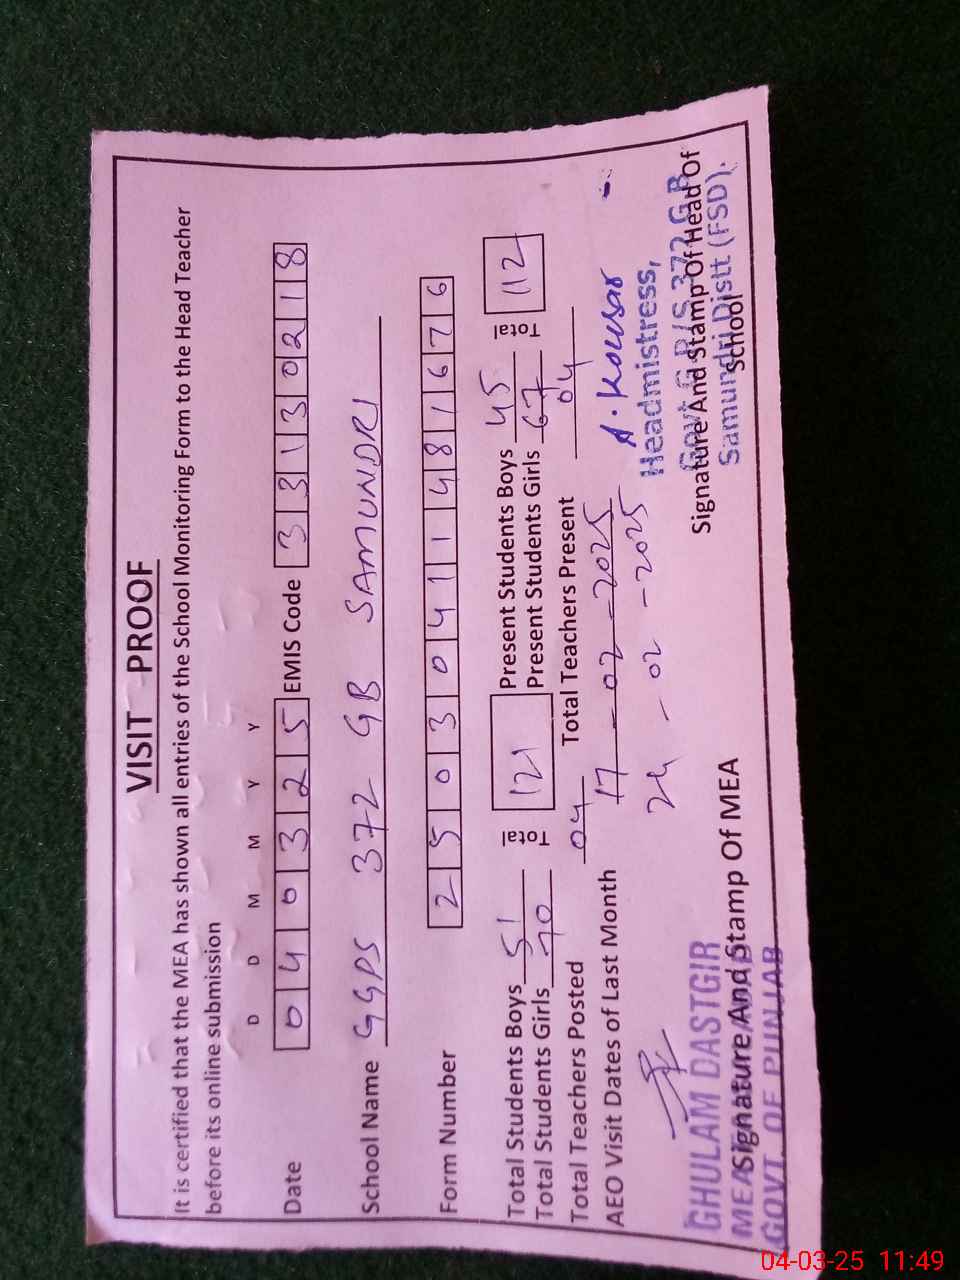 VISIT PROOF
It is certified that the MEA has shown all entries of the School Monitoring Form to the Head Teacher
before its online submission
D D M M Y Y
Date 0 4 0 3 2 5 EMIS Code 3 3 1 3 0 2 1 8
School Name GGPS 372 GB SAMUNDRI
Form Number 2 5 0 3 0 4 1 1 4 8 1 6 7 6
Total Students Boys 51 Total 121 Present Students Boys 45 Total 112
Total Students Girls 70 Present Students Girls 67
Total Teachers Posted 04 Total Teachers Present 04
AEO Visit Dates of Last Month 17-02-2025
24-02-2025
A. Kowsar
Headmistress,
Govt G.P/S 372 G.B
Samundri Distt (FSD).
Signature And Stamp Of Head Of
School
GHULAM DASTGIR
MEA
GOVT. OF PUNJAB
Signature And Stamp Of MEA
04-03-25 11:49